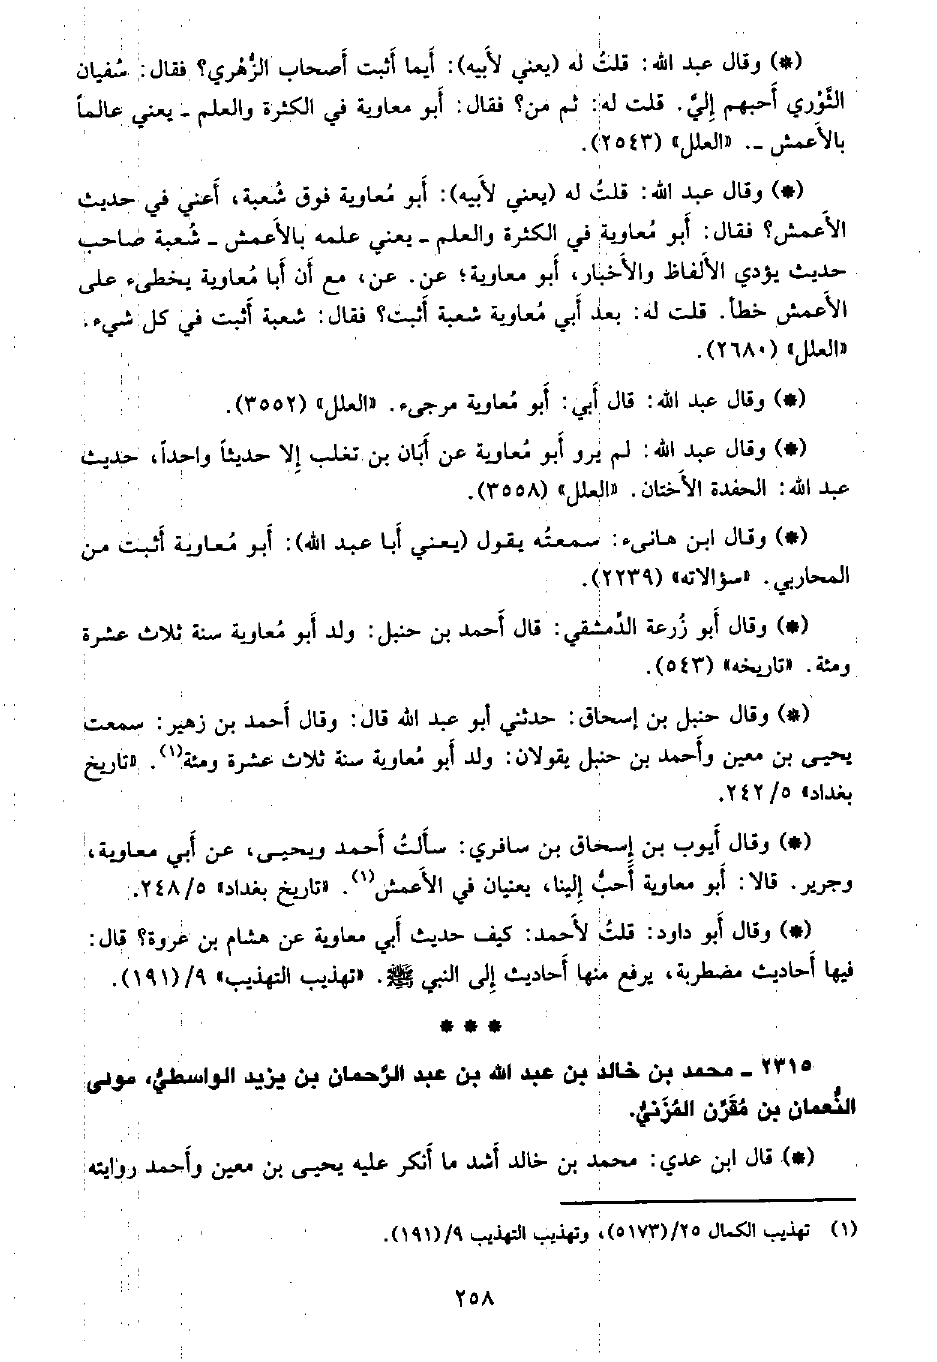 (*) وقال عبد الله: قلتُ له (يعني لأبيه): أيما أثبت أصحاب الزُّهري؟ فقال: سُفيان
الثَّوْري أحبهم إليَّ. قلت له: ثم من؟ فقال: أبو معاوية في الكثرة والعلم ـ يعني عالماً
بالأعمش ـ. «العلل» (٢٥٤٣).
(*) وقال عبد الله: قلتُ له (يعني لأبيه): أبو مُعاوية فوق شُعبة، أعني في حديث
الأعمش؟ فقال: أبو مُعاوية في الكثرة والعلم ـ يعني علمه بالأعمش ـ شُعبة صاحب
حديث يؤدي الألفاظ والأخبار، أبو معاوية؛ عن. عن، مع أن أبا مُعاوية يخطىء على
الأعمش خطأ. قلت له: بعد أبي مُعاوية شعبة أثبت؟ فقال: شعبة أثبت في كل شيء.
«العلل» (٢٦٨٠).
(*) وقال عبد الله: قال أبي: أبو مُعاوية مرجىء. «العلل» (٣٥٥٢).
(*) وقال عبد الله: لم يرو أبو مُعاوية عن أبَان بن تغلب إلا حديثاً واحداً، حديث
عبد الله: الحفدة الأختان. «العلل» (٣٥٥٨).
(*) وقال ابن هانىء: سمعتُه يقول (يعني أبا عبد الله): أبو مُعاوية أثبت من
المحاربي. «سؤالاته» (٢٢٣٩).
(*) وقال أبو زُرعة الدِّمشقي: قال أحمد بن حنبل: ولد أبو مُعاوية سنة ثلاث عشرة
ومئة. «تاريخه» (٥٤٣).
(*) وقال حنبل بن إسحاق: حدثني أبو عبد الله قال: وقال أحمد بن زهير: سمعت
يحيى بن معين وأحمد بن حنبل يقولان: ولد أبو مُعاوية سنة ثلاث عشرة ومئة(١). «تاريخ
بغداد» ٥/ ٢٤٢.
(*) وقال أيوب بن إسحاق بن سافري: سألتُ أحمد ويحيى، عن أبي معاوية،
وجرير. قالا: أبو معاوية أحبُّ إلينا، يعنيان في الأعمش(١). «تاريخ بغداد» ٥/ ٢٤٨.
(*) وقال أبو داود: قلتُ لأحمد: كيف حديث أبي معاوية عن هشام بن عروة؟ قال:
فيها أحاديث مضطربة، يرفع منها أحاديث إلى النبي ﷺ. «تهذيب التهذيب» ٩/ (١٩١).
* * *
٢٣١٥ ـ محمد بن خالد بن عبد الله بن عبد الرَّحمان بن يزيد الواسطيُّ، مولى
النُّعمان بن مُقَرِّن المُزَنيُّ.
(*) قال ابن عدي: محمد بن خالد أشد ما أنكر عليه يحيى بن معين وأحمد روايته
(١) تهذيب الكمال ٢٥/ (٥١٧٣)، وتهذيب التهذيب ٩/ (١٩١).
٢٥٨